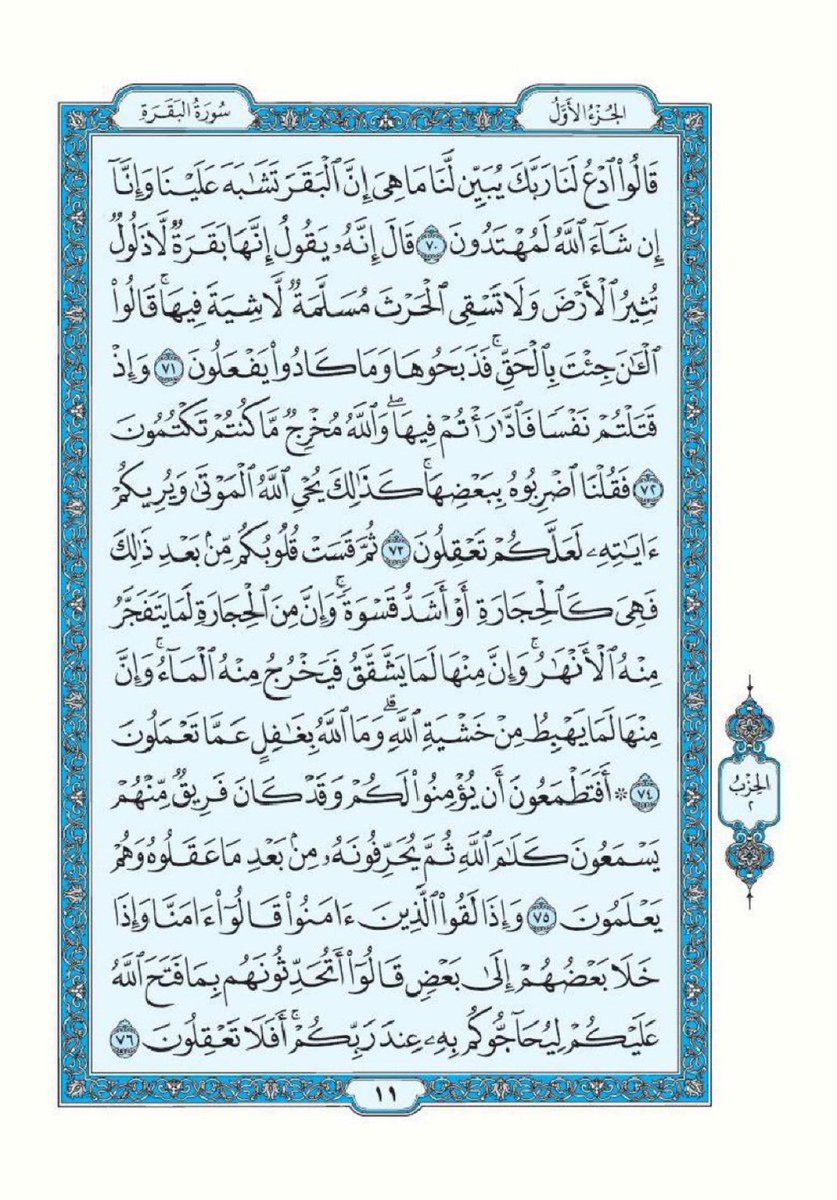 الجُزْءُ الأَوَّلُ
سُورَةُ البَقَرَةِ
قَالُوا۟ ٱدْعُ لَنَا رَبَّكَ يُبَيِّن لَّنَا مَا هِىَ إِنَّ ٱلْبَقَرَ تَشَٰبَهَ عَلَيْنَا وَإِنَّآ
إِن شَآءَ ٱللَّهُ لَمُهْتَدُونَ ٧٠ قَالَ إِنَّهُۥ يَقُولُ إِنَّهَا بَقَرَةٌ لَّا ذَلُولٌ
تُثِيرُ ٱلْأَرْضَ وَلَا تَسْقِى ٱلْحَرْثَ مُسَلَّمَةٌ لَّا شِيَةَ فِيهَا ۚ قَالُوا۟
ٱلْـَٰٔنَ جِئْتَ بِٱلْحَقِّ ۚ فَذَبَحُوهَا وَمَا كَادُوا۟ يَفْعَلُونَ ٧١ وَإِذْ
قَتَلْتُمْ نَفْسًا فَٱدَّٰرَْٰٔتُمْ فِيهَا ۖ وَٱللَّهُ مُخْرِجٌ مَّا كُنتُمْ تَكْتُمُونَ
٧٢ فَقُلْنَا ٱضْرِبُوهُ بِبَعْضِهَا ۚ كَذَٰلِكَ يُحْىِ ٱللَّهُ ٱلْمَوْتَىٰ وَيُرِيكُمْ
ءَايَٰتِهِۦ لَعَلَّكُمْ تَعْقِلُونَ ٧٣ ثُمَّ قَسَتْ قُلُوبُكُم مِّنۢ بَعْدِ ذَٰلِكَ
فَهِىَ كَٱلْحِجَارَةِ أَوْ أَشَدُّ قَسْوَةً ۚ وَإِنَّ مِنَ ٱلْحِجَارَةِ لَمَا يَتَفَجَّرُ
مِنْهُ ٱلْأَنْهَٰرُ ۚ وَإِنَّ مِنْهَا لَمَا يَشَّقَّقُ فَيَخْرُجُ مِنْهُ ٱلْمَآءُ ۚ وَإِنَّ
مِنْهَا لَمَا يَهْبِطُ مِنْ خَشْيَةِ ٱللَّهِ ۗ وَمَا ٱللَّهُ بِغَٰفِلٍ عَمَّا تَعْمَلُونَ
٧٤ * أَفَتَطْمَعُونَ أَن يُؤْمِنُوا۟ لَكُمْ وَقَدْ كَانَ فَرِيقٌ مِّنْهُمْ
يَسْمَعُونَ كَلَٰمَ ٱللَّهِ ثُمَّ يُحَرِّفُونَهُۥ مِنۢ بَعْدِ مَا عَقَلُوهُ وَهُمْ
يَعْلَمُونَ ٧٥ وَإِذَا لَقُوا۟ ٱلَّذِينَ ءَامَنُوا۟ قَالُوٓا۟ ءَامَنَّا وَإِذَا
خَلَا بَعْضُهُمْ إِلَىٰ بَعْضٍ قَالُوٓا۟ أَتُحَدِّثُونَهُم بِمَا فَتَحَ ٱللَّهُ
عَلَيْكُمْ لِيُحَآجُّوكُم بِهِۦ عِندَ رَبِّكُمْ ۚ أَفَلَا تَعْقِلُونَ ٧٦
الحِزْبُ
٢
١١